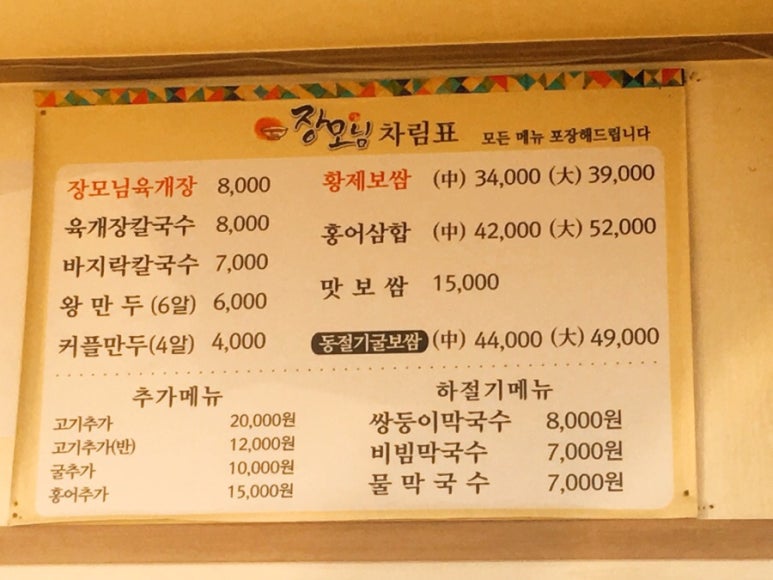 장모님 차림표 모든 메뉴 포장해드립니다
장모님육개장 8,000
육개장칼국수 8,000
바지락칼국수 7,000
왕만두 (6알) 6,000
커플만두(4알) 4,000
황제보쌈 (中) 34,000 (大) 39,000
홍어삼합 (中) 42,000 (大) 52,000
맛보쌈 15,000
동절기굴보쌈 (中) 44,000 (大) 49,000
추가메뉴
고기추가 20,000원
고기추가(반) 12,000원
굴추가 10,000원
홍어추가 15,000원
하절기메뉴
쌍둥이막국수 8,000원
비빔막국수 7,000원
물막국수 7,000원